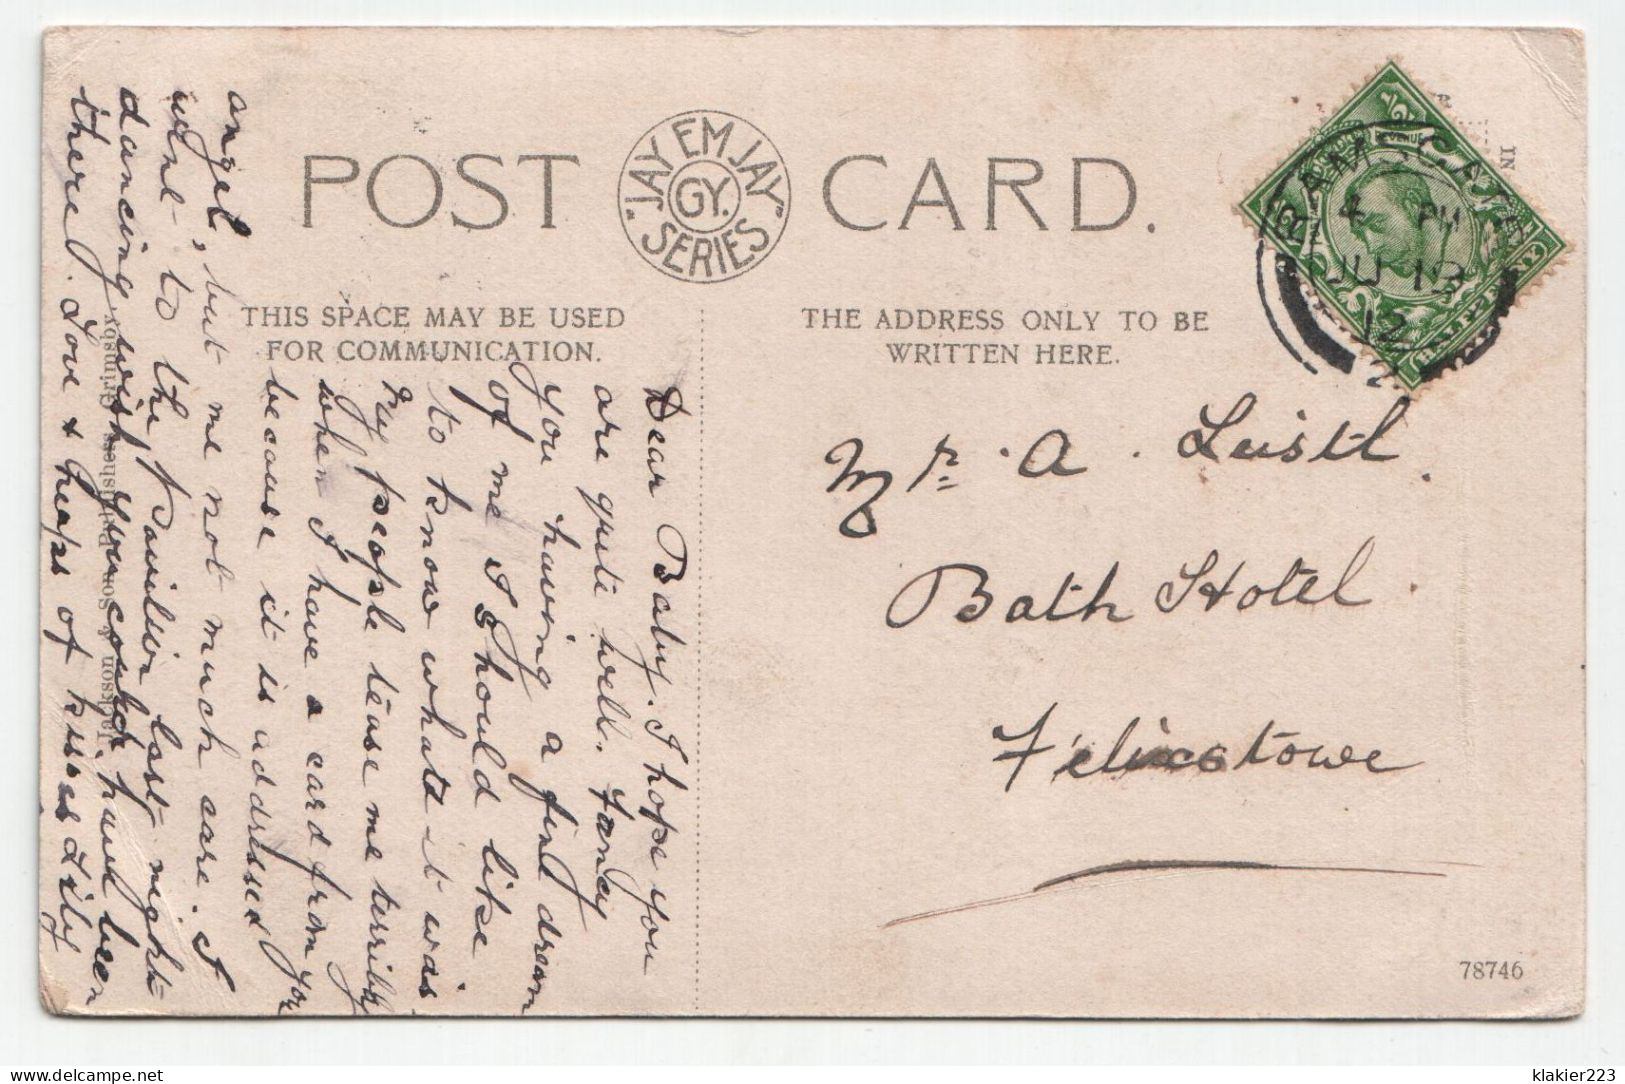 POST CARD.
"JAY EM JAY" SERIES
GY.
THIS SPACE MAY BE USED
FOR COMMUNICATION.
THE ADDRESS ONLY TO BE
WRITTEN HERE.
RAMSGATE
4 PM
JU 13
12
2
REVENUE
HALFPENNY
IN
Dear Baby. I hope you
are quite well. Fancy
you having a fine dream
of me I should like
to know what it was
my people tease me terribly
when I have a card from you
because it is addressed
angel, but me not much care. I
went to the Pavilion last night
dancing wish you could have been
there. Love & heaps of kisses Lily
Mr. A. Leistl.
Bath Hotel
Felixstowe
Jackson & Son, Publishers, Grimsby
78746
klakier223